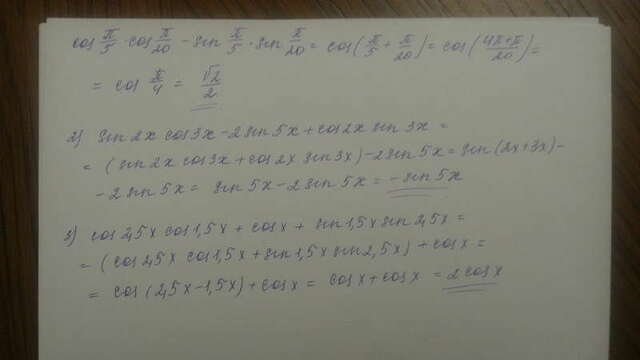 cos π/5 · cos π/20 - sin π/5 · sin π/20 = cos(π/5 + π/20) = cos(4π+π/20) =
= cos π/4 = √2/2
2) sin2x cos3x - 2sin5x + cos2x sin3x =
= (sin2x cos3x + cos2x sin3x) - 2sin5x = sin(2x+3x) -
- 2sin5x = sin5x - 2sin5x = - sin5x
3) cos2,5x cos1,5x + cosx + sin1,5x sin2,5x =
= (cos2,5x cos1,5x + sin1,5x sin2,5x) + cosx =
= cos(2,5x - 1,5x) + cosx = cosx + cosx = 2cosx